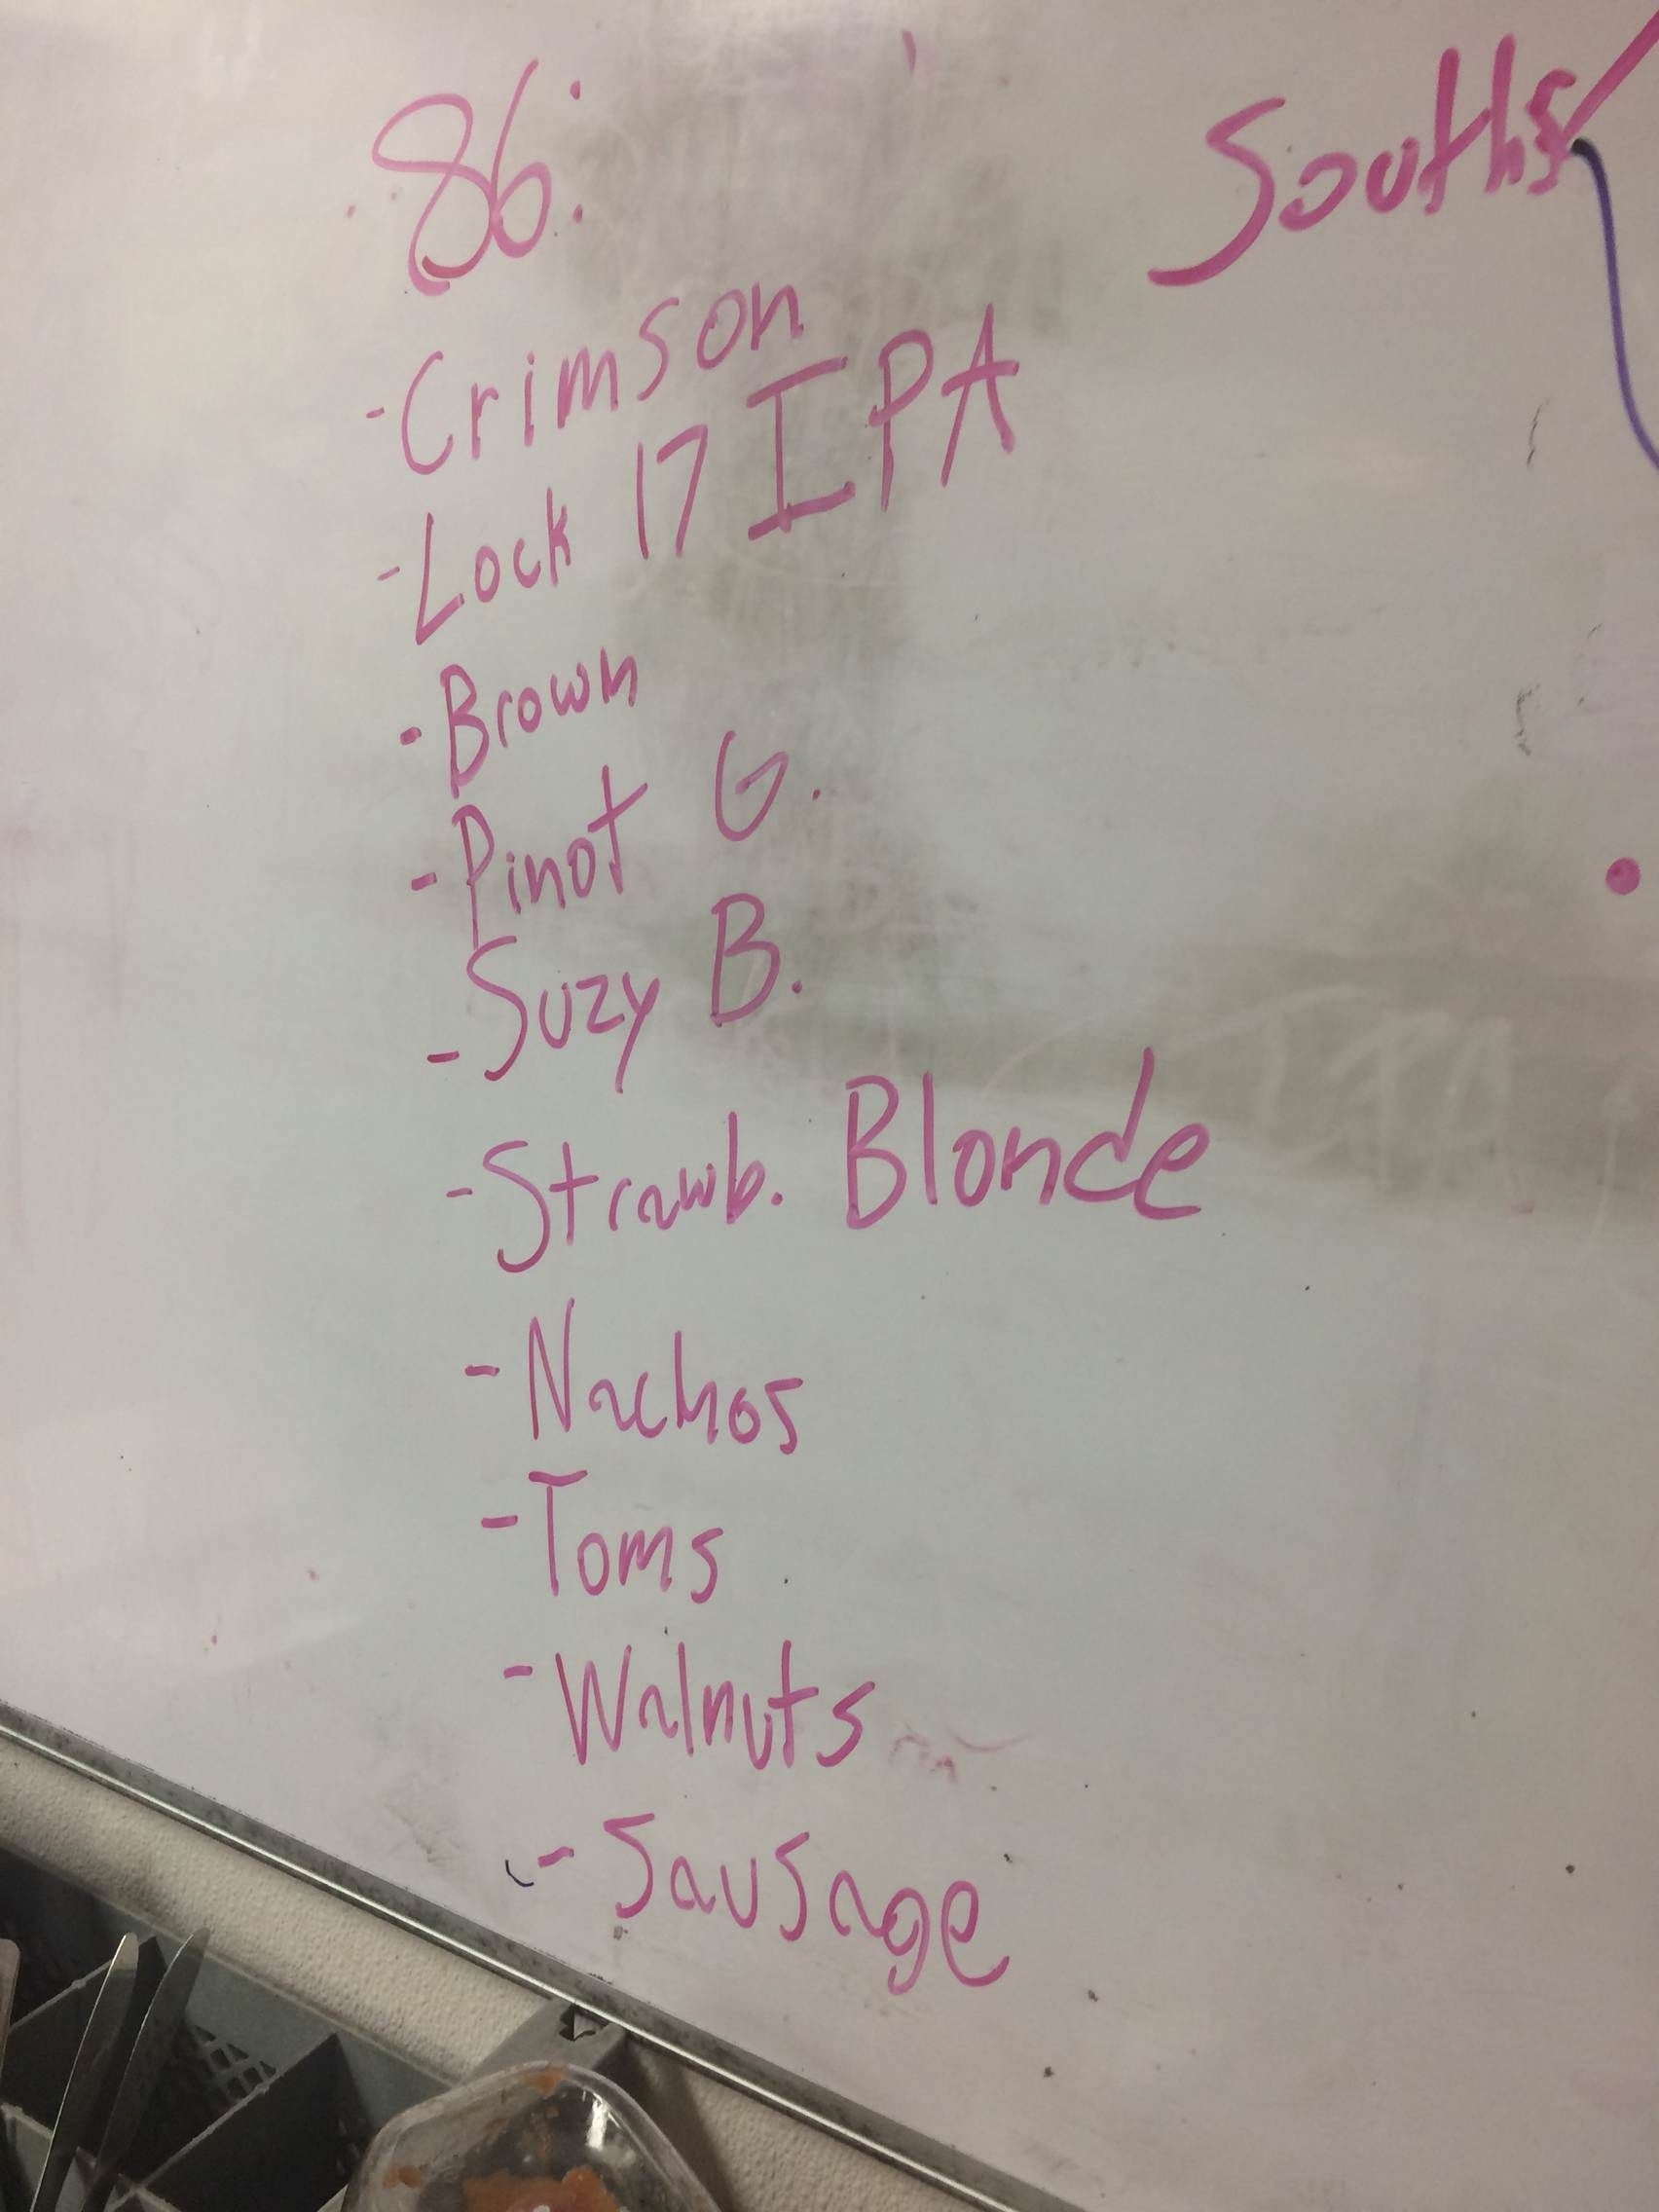 86:
Souths
- Crimson
- Lock 17 IPA
- Brown
- Pinot G.
- Suzy B.
- Strawb. Blonde
- Nachos
- Toms
- Walnuts
- Sausage